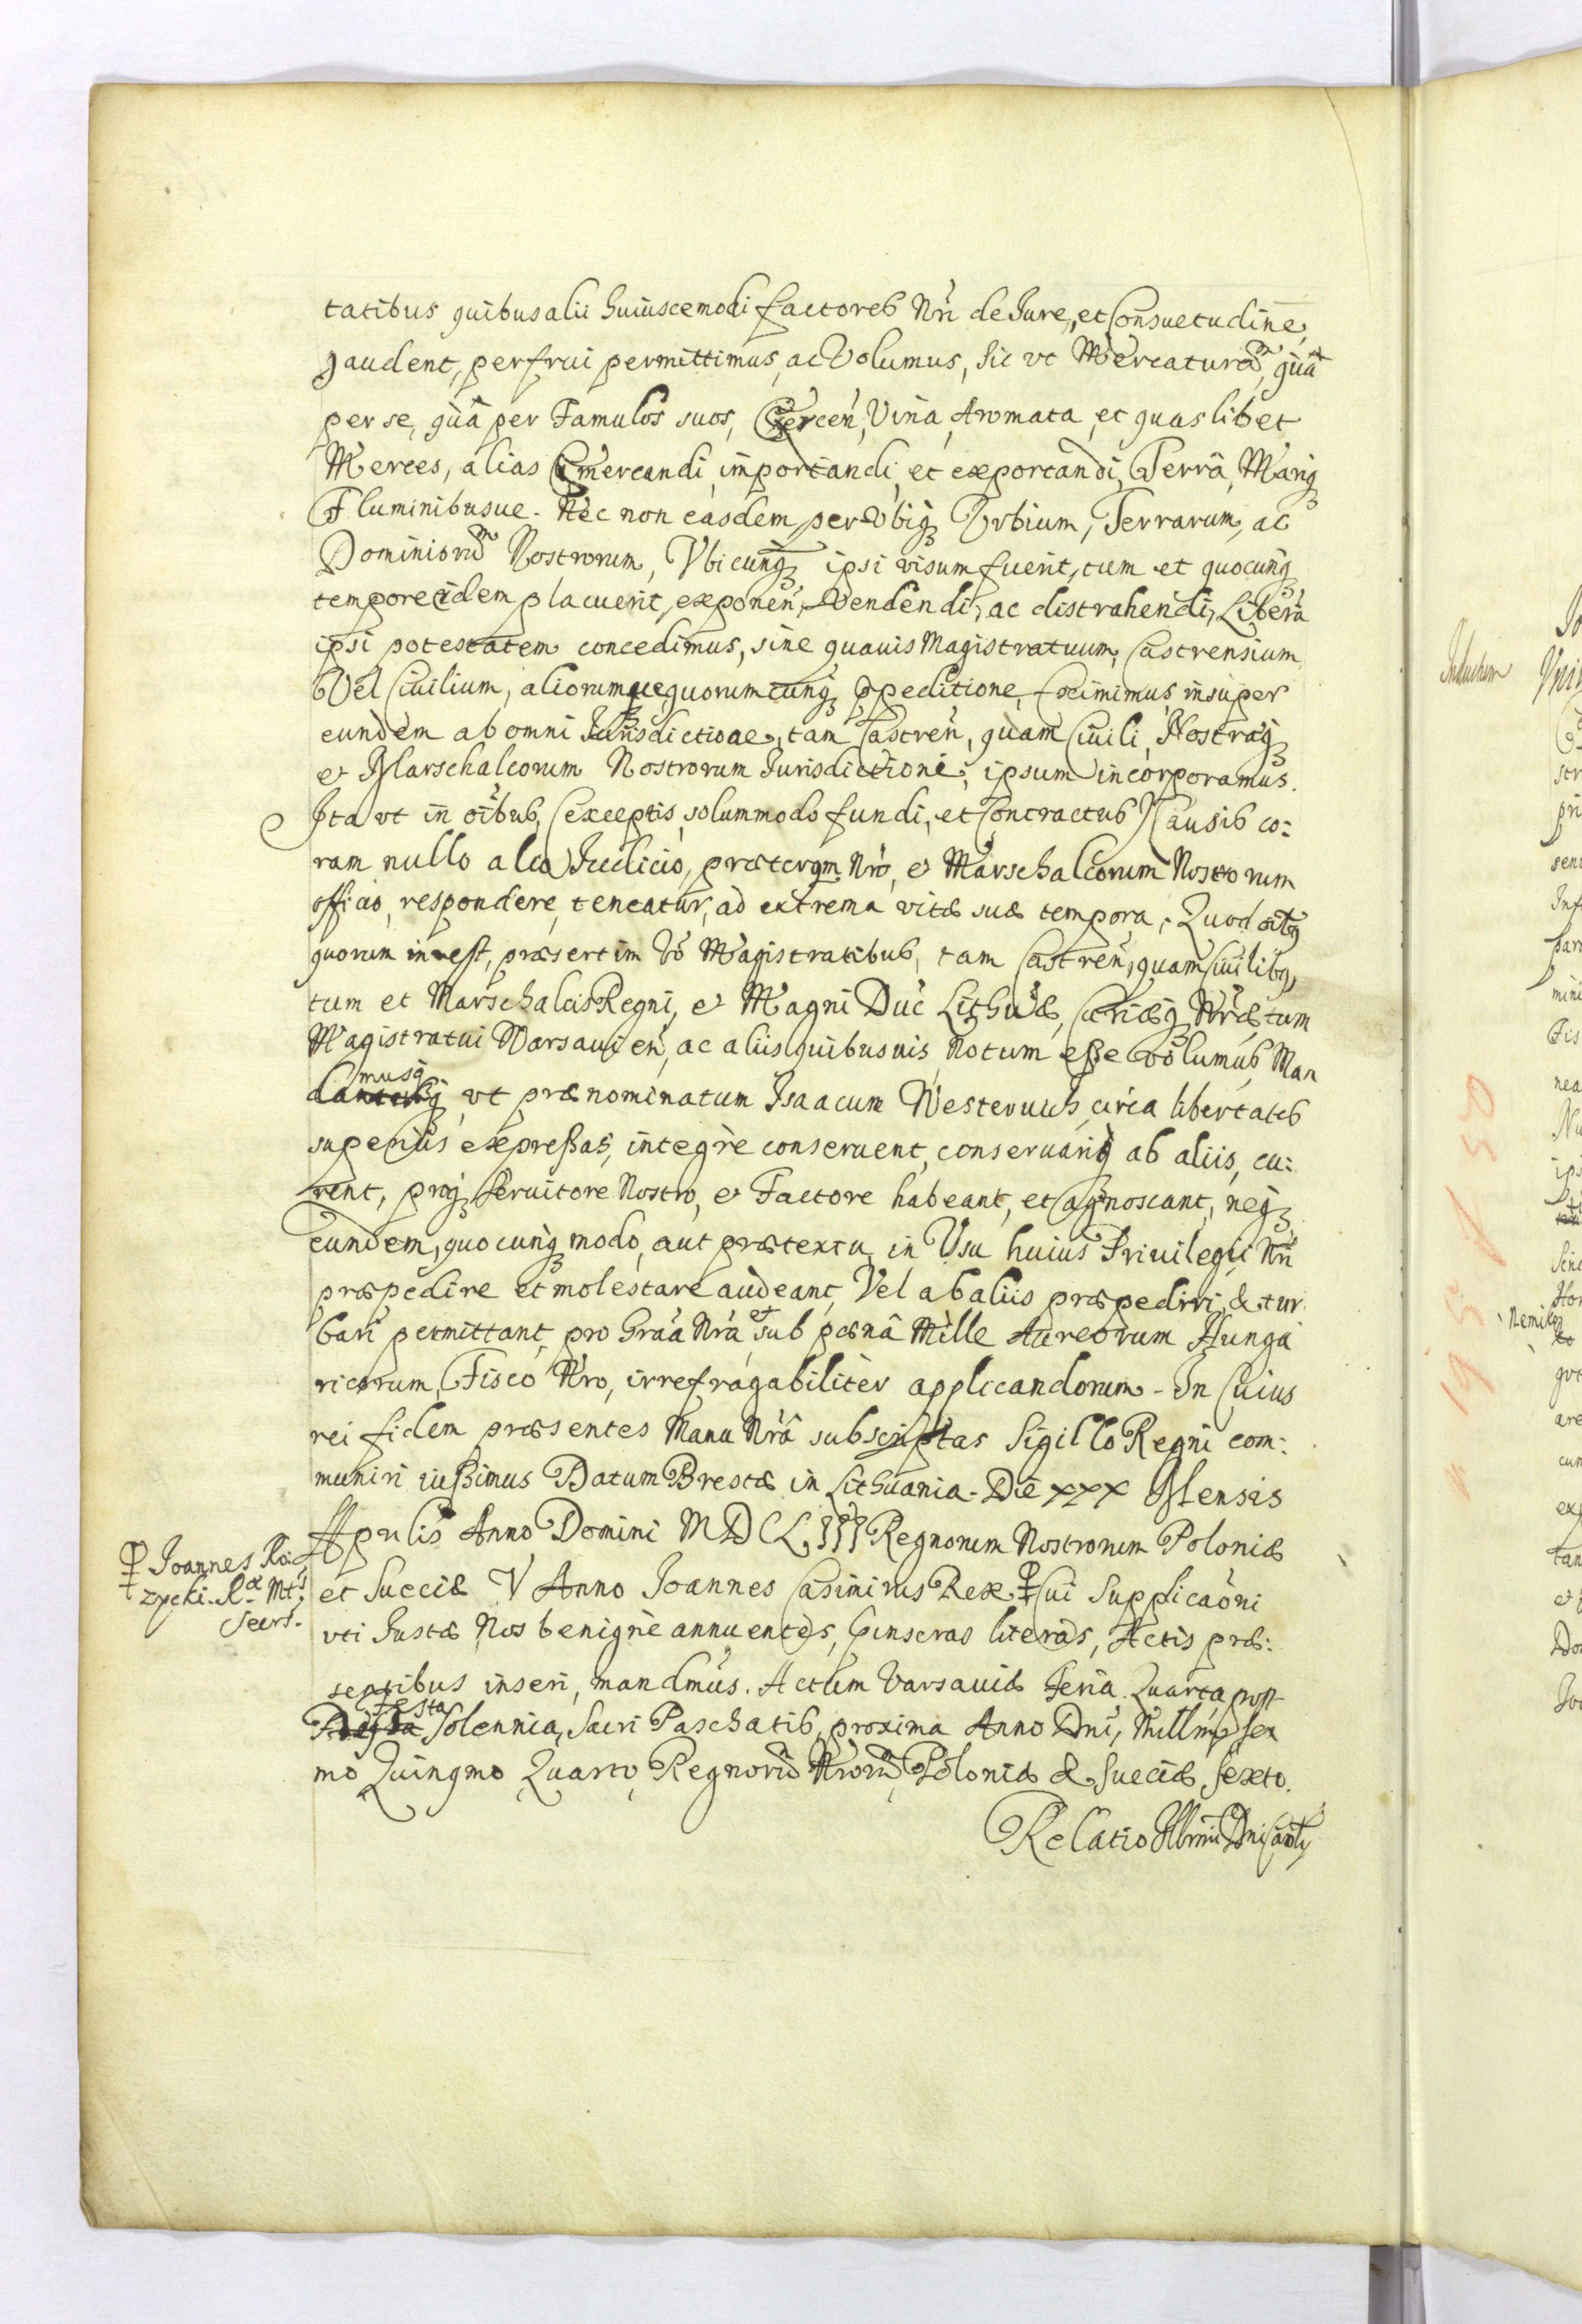 tatibus quibus alii huiuscemodi factores Nri de Iure, et Consuetudine,
gaudent, perfrui permittimus, ac Volumus, sic vt Mercaturam, qua
per se, qua per Famulos suos, Exercen, Vina, Aromata, et quaslibet
Merces, alias Emercandi, importandi, et exportandi, Terra, Mariq
Fluminibusue. Nec non easdem, per Vbiq Vrbium, Terrarum, ac
Dominiorum Nostrorum, Vbicunq ipsi visum fuerit, tum et quocunq
tempore eidem placuerit, exponen, Vendendi, ac distrahendi, Libera
ipsi potestatem concedimus, sine quauis Magistratuum, Castrensium
Vel Ciuilium, aliorumue quorumcunq ppeditione, Eximimus insuper
eundem ab omni Iurisdictioae, tam Castren, quam Ciuili, Nostraq
et Marschalcorum Nostrorum Iurisdictioni, ipsum incorporamus.
Ita vt in oibus, (exceptis solummodo fundi, et Contractus) Causis co:
ram nullo alio Iudicio, praeterqm Nro, et Marschalcorum Nostrorum
officio, respondere teneatur, ad extrema vitae suae tempora. Quod oibus
quorum inrest, praesertim Vo Magistratibus, tam Castren, quam Ciuilibq,
tum et Marschalcis Regni, et Magni Duc Lithuae, Curiaeq Nrae, tum
Magistratui Varsauien, ac aliis quibusuis Notum esse volumus, Man
musq
damus, vt praenominatum Isaacum Westeruich, circa libertates
superius expressas, integre conseruent, conseruariq ab aliis, cu:
rent, proq Seruitore Nostro, et Factore habeant, et agnoscant, neq
eundem, quocunq modo, aut praetextu, in Vsu huius Priuilegii Nri
praepedire et molestare audeant, Vel ab aliis praepediri, & tur
bari permittant, pro Graa Nra et sub paena Mille Aureorum Hunga
ricorum, Fisco Nro, irrefragabiliter applicandorum. In Cuius
rei fidem praesentes Manu Nra subscriptas Sigillo Regni com:
muniri iussimus Datum Brestae in Lithuania. Die XXX Mensis
Aprilis Anno Domini MDCLIII Regnorum Nostrorum Poloniae
Joannes Roi
zycki. Rae Mtis
Secrs.
et Sueciae V Anno Joannes Casimirus Rex. Cui Supplicaoni
vti Iustae Nos benigne annuentes, Insertas literas, Actis prae:
sentibus inseri, mandmus. Actum Varsauiae Feria Quarta post
Festa
Solennia, Sacri Paschatis, proxima Anno Dni, Millmo Sex
mo Quinqmo Quarto, Regnorum Nrorum, Poloniae & Sueciae, Sexto.
Relatio Illrmi Dni
Indultum
Nemi